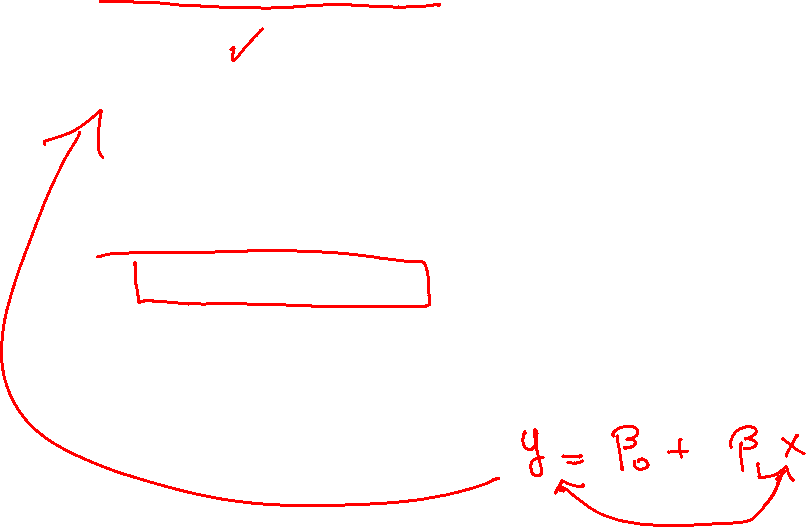 y = β₀ + β₁ x